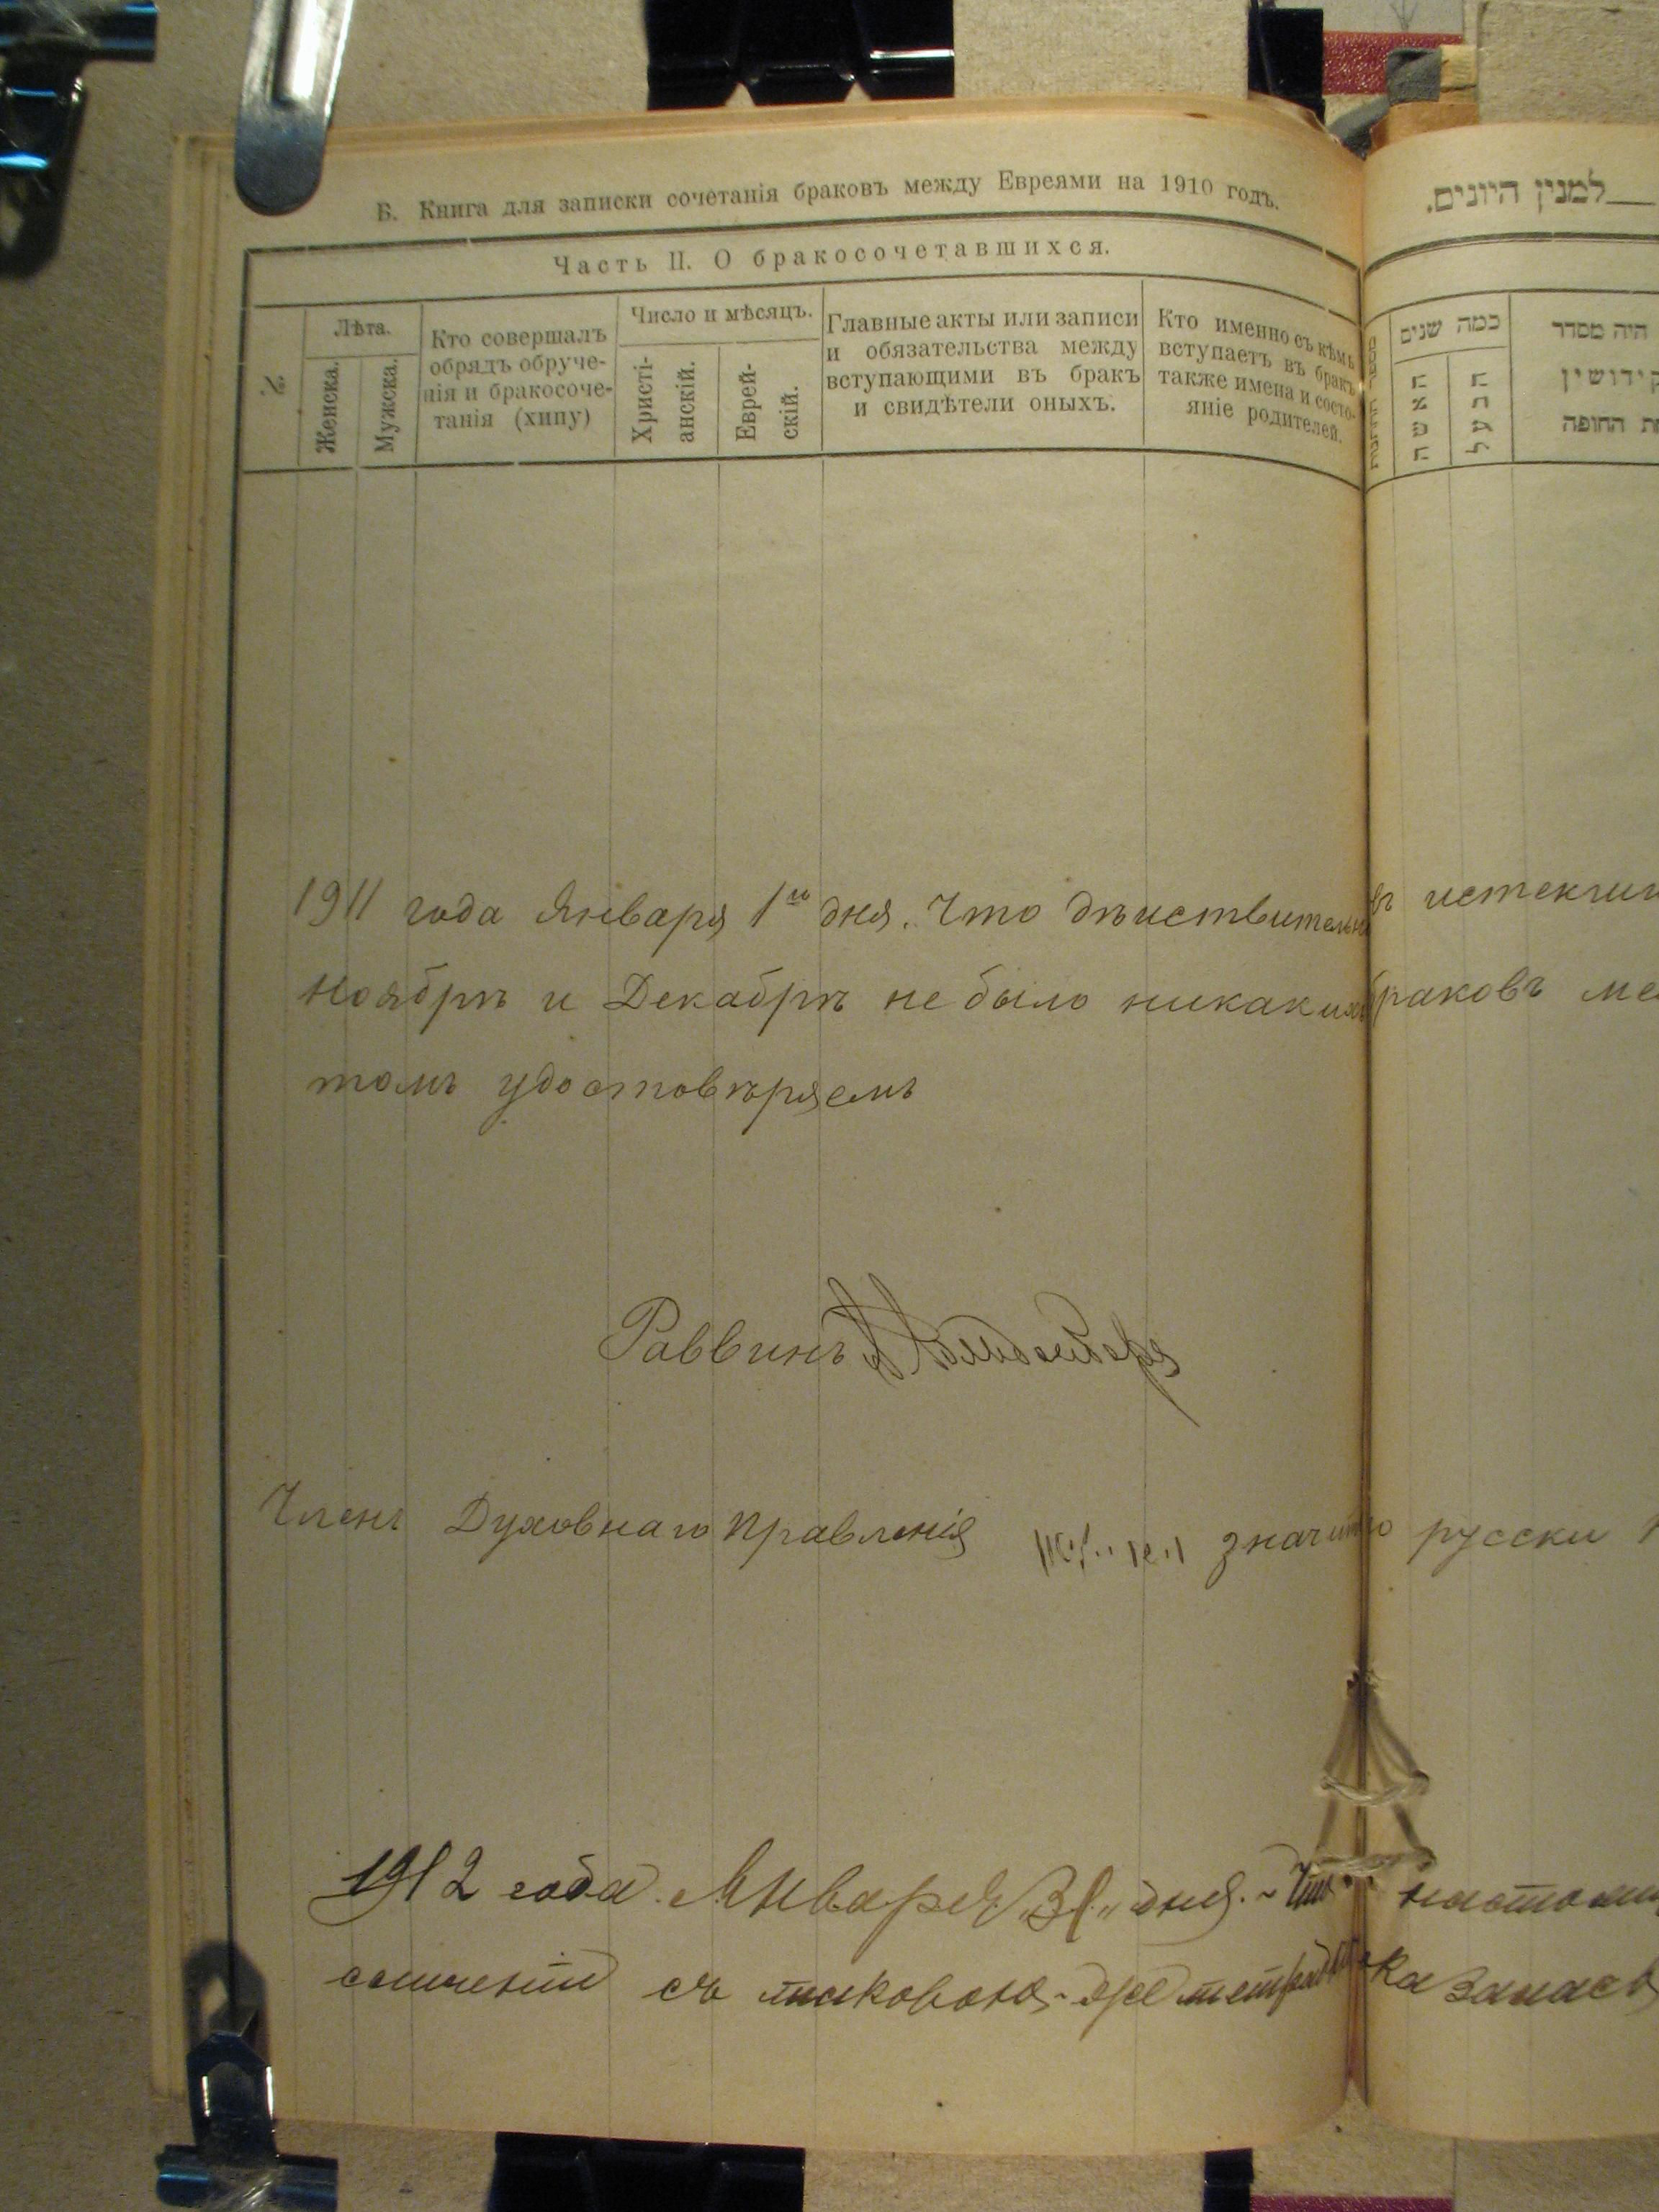 Б. Книга для записки сочетанія браковъ между Евреями на 1910 годъ.
Часть II. О бракосочетавшихся.
№
Лѣта.
Женска.
Мужска.
Кто совершалъ
обрядъ обруче-
нія и бракосоче-
танія (хипу)
Число и мѣсяцъ.
Христі-
анскій.
Еврей-
скій.
Главные акты или записи
и обязательства между
вступающими въ бракъ
и свидѣтели оныхъ.
Кто именно съ кѣмъ
вступаетъ въ бракъ
также имена и состо-
яніе родителей.
למנין היונים.
כמה שנים
האשה
הבעל
היה מסדר
קידושין
החופה
1911 года Января 1го дня. Что дѣйствительно въ истекши
Ноябрѣ и Декабрѣ не было никакихъ браковъ ме
томъ удостовѣряемъ
Раввинъ
Членъ Духовнаго Правленія значитъ по русски
1912 года Января „31" дня. Что настоящ
сличеніи съ таковою-же тетрадью оказалась